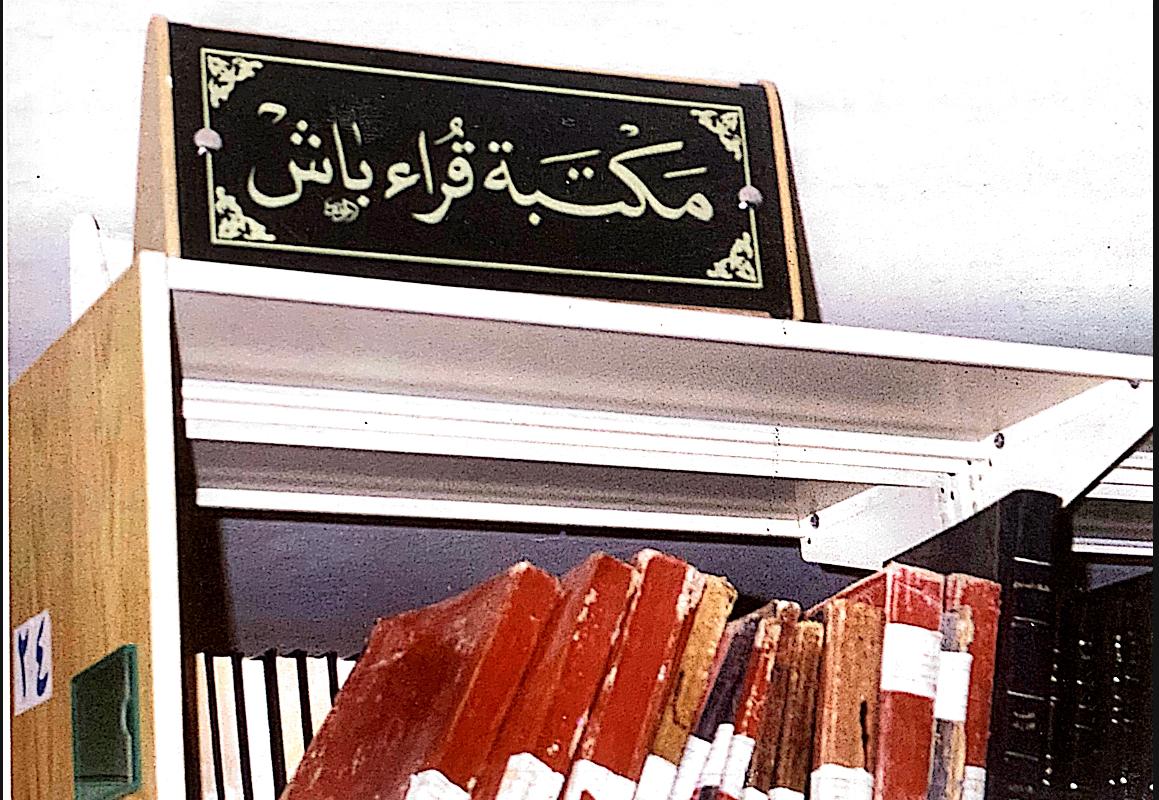 مكتبة قُراء باش
٢٤